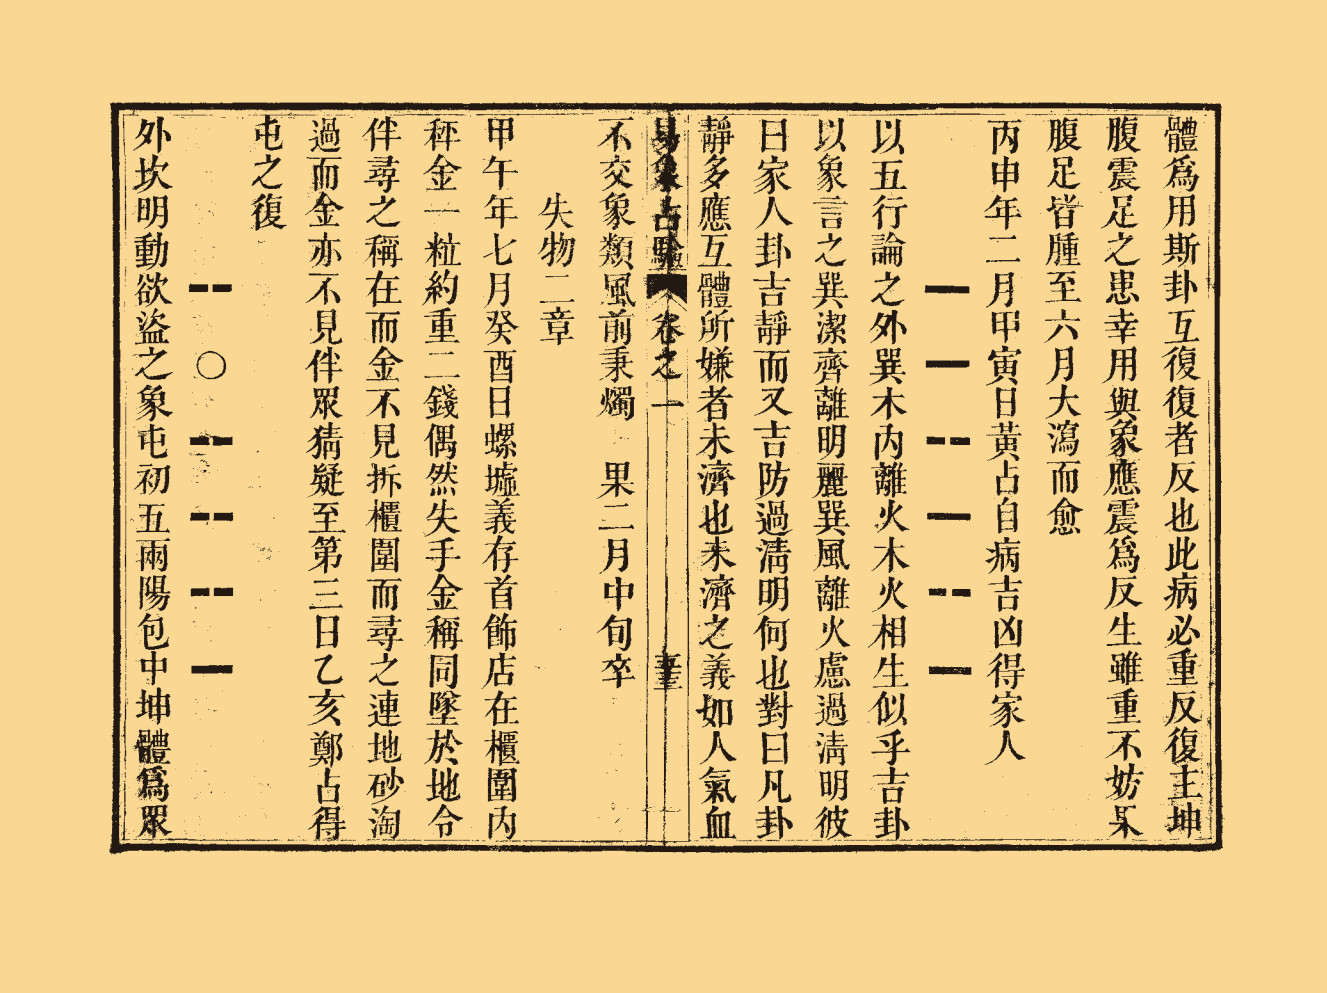 體爲用斯卦互復復者反也此病必重反復主坤
腹震足之患幸用與象應震爲反生雖重不妨果
腹足皆腫至六月大瀉而愈
丙申年二月甲寅日黃占自病吉凶得家人
以五行論之外巽木內離火木火相生似乎吉卦
以象言之巽潔齊離明麗巽風離火慮過淸明彼
曰家人卦吉靜而又吉防過淸明何也對曰凡卦
靜多應互體所嫌者未濟也未濟之義如人氣血
易象占驗 卷之一
不交象類風前秉燭 果二月中旬卒
失物二章
甲午年七月癸酉日螺墟義存首飾店在櫃圍內
秤金一粒約重二錢偶然失手金稱同墜於地令
伴尋之稱在而金不見拆櫃圍而尋之連地砂淘
過而金亦不見伴眾猜疑至第三日乙亥鄭占得
屯之復
外坎明動欲盜之象屯初五兩陽包中坤體爲眾